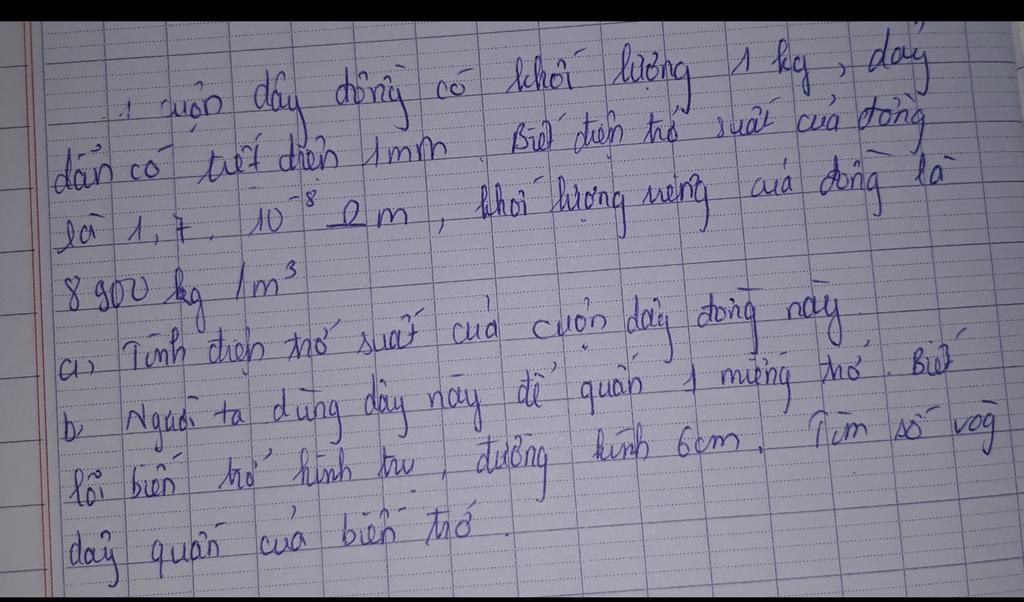 1 cuộn dây đồng có khối lượng 1 kg, dây
dẫn có tiết diện 1mm. Biết điện trở suất của đồng
là 1,7. 10⁻⁸ Ωm, khối lượng riêng của đồng là
8900 kg /m³
a, Tính điện trở suất của cuộn dây đồng này
b, Người ta dùng dây này để quấn 1 miếng trở. Biết
lõi biến trở hình trụ, đường kính 6cm. Tìm số vòg
dây quấn của biến trở.